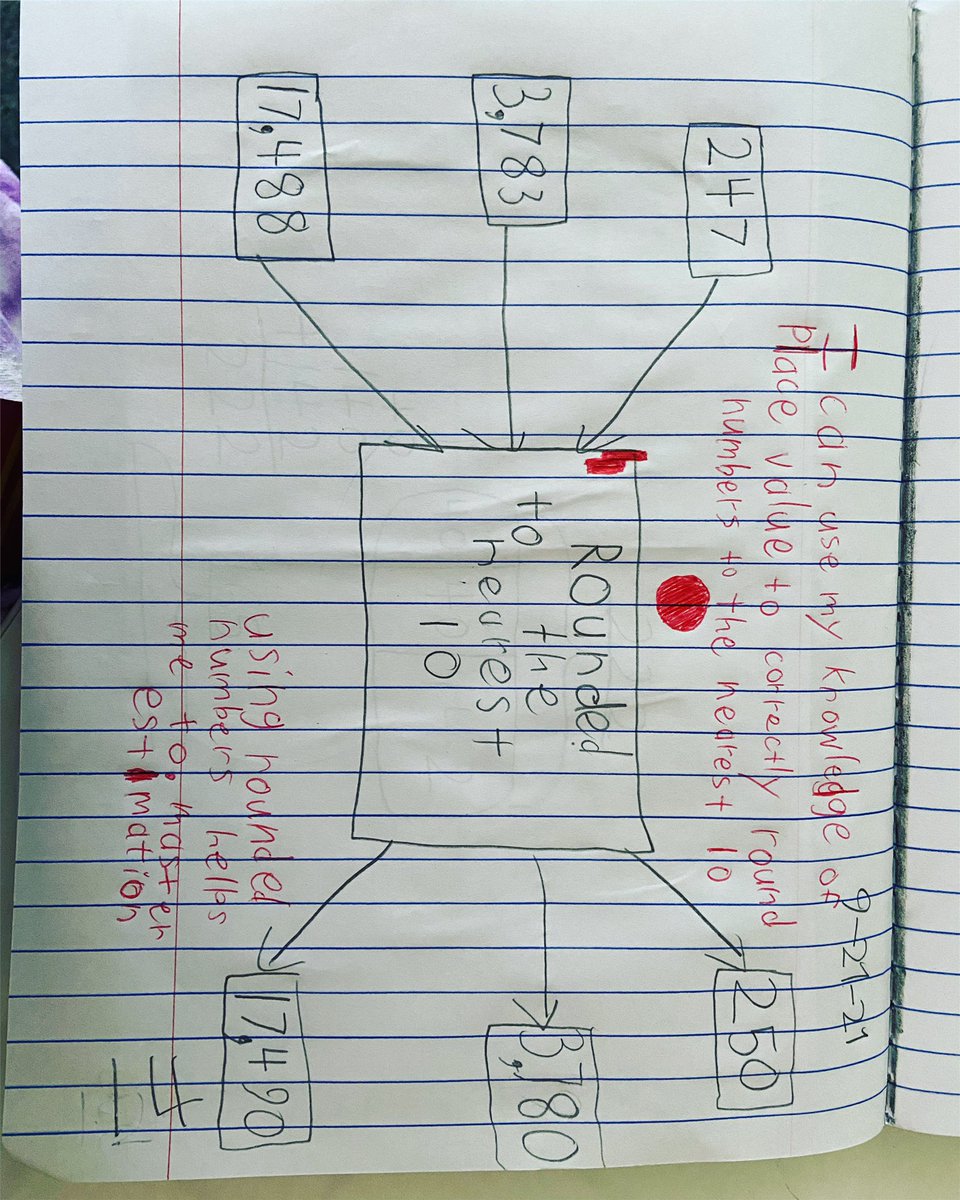 9-21-21
I can use my knowledge of
place value to correctly round
numbers to the nearest 10
247
250
Rounded
to the
nearest
10
3,783
3,780
17,488
17,490
using rounded
numbers helps
me to master
estimation